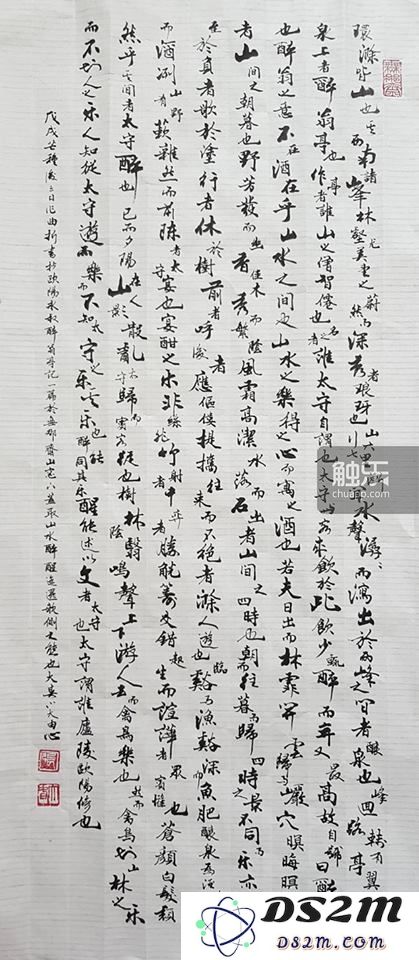 環滁皆山也其西南諸峰林壑尤美望之蔚然而深秀者琅琊也山行六七里漸聞水聲潺潺而瀉出於兩峰之間者釀泉也峰回路轉有亭翼
泉上者醉翁亭也作亭者誰山之僧智僊也名之者誰太守自謂也太守與客來飲於此飲少輒醉而年又最高故自號曰醉
也醉翁之意不在酒在乎山水之間也山水之樂得之心而寓之酒也若夫日出而林霏開雲歸而巖穴暝晦明
者山間之朝暮也野芳發而幽香佳木秀而繁陰風霜高潔水落而石出者山間之四時也朝而往暮而歸四時之景不同而樂亦
至於負者歌於塗行者休於樹前者呼後者應傴僂提攜往來而不絕者滁人遊也臨谿而漁谿深魚肥釀泉為酒
而酒冽山野有蔌雜然而前陳者太守宴也宴酣之樂非絲非竹射者中弈者勝觥籌交錯起坐而諠譁者眾賓懽也蒼顏白髮頹
然乎其間者太守醉也已而夕陽在山人影散亂太守歸而賓客從也樹林陰翳鳴聲上下游人去而禽鳥樂也然而禽鳥知山林之樂
而不知人之樂人知從太守遊而樂而不知太守之樂其樂也醉能同其樂醒能述以文者太守也太守謂誰廬陵歐陽修也
戊戌芒種後三日作曲折書抄歐陽永叔醉翁亭記一篇於無那齋山窗以蓋取山水醉醒
触乐
chuapp.com
DS2M
DS2m.com